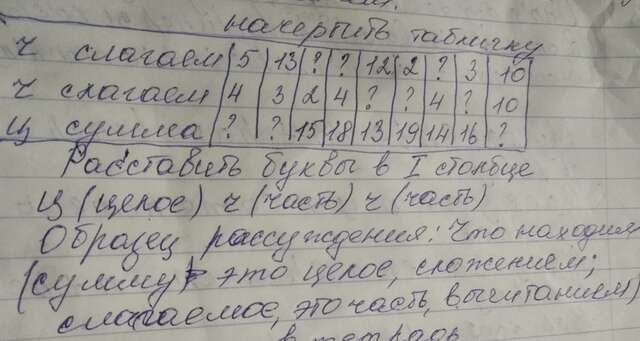 начертить табличку
ч слагаем 5 13 ? ? 12 2 ? 3 10
ч слагаем 4 3 2 4 ? ? 4 ? 10
ц сумма ? ? 15 18 13 19 14 16 ?
Расставить буквы в I столбце
ц (целое) ч (часть) ч (часть)
Образец рассуждения: Что находим
(сумму) - это целое, сложением;
слагаемое, это часть, вычитанием)
в тетрадь